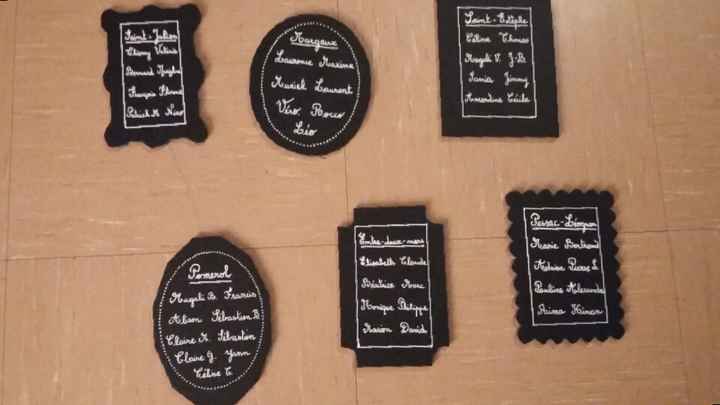 Saint-Julien
Thierry Valérie
Bernard
François
Patrick M. Nico
Margaux
Laurence Maxime
Muriel Laurent
Véro. Rocco
Léo
Saint-Estèphe
Céline Thomas
Magali V. J-B.
Tania Jimmy
Amandine Cécile
Pomerol
Magali B. Francis
Alison Sébastien B
Claire M. Sébastien
Claire G. Yann
Céline C.
Entre-deux-mers
Elisabeth Claude
Béatrice Marc
Monique Philippe
Marion David
Pessac-Léognan
Marie Bertrand
Pierre L
Pauline Alexandre